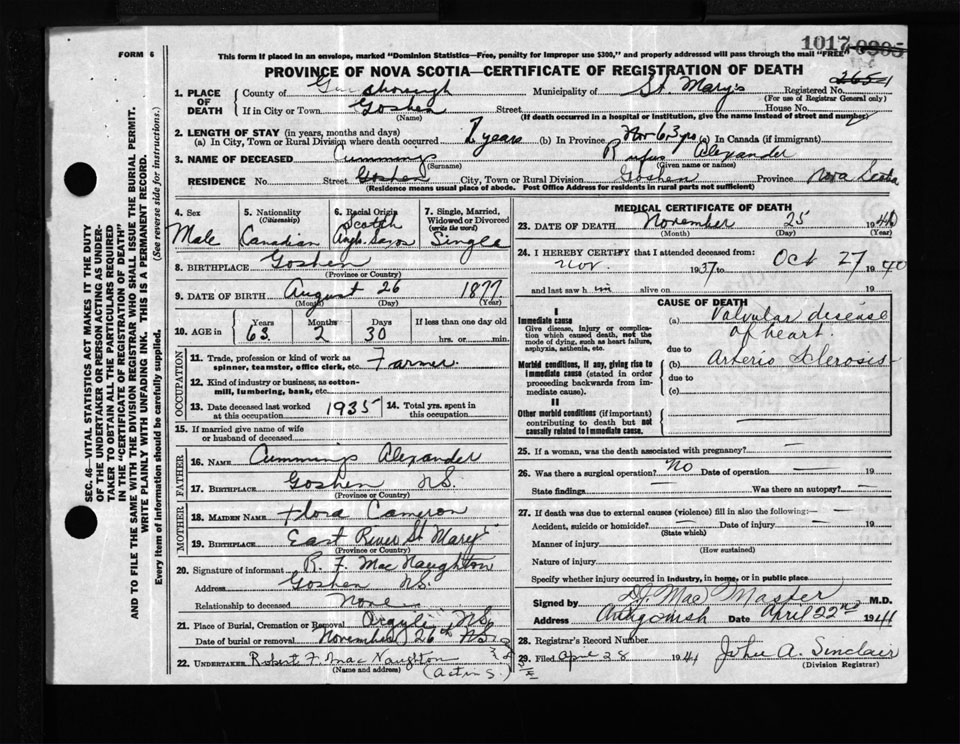 1017 0305
FORM 6
This form if placed in an envelope, marked "Dominion Statistics—Free, penalty for improper use $300," and properly addressed will pass through the mail "FREE"
PROVINCE OF NOVA SCOTIA—CERTIFICATE OF REGISTRATION OF DEATH
1. PLACE OF DEATH County of Guysborough Municipality of St Mary's Registered No.
(For use of Registrar General only)
If in City or Town Goshen Street House No.
(Name) (If death occurred in a hospital or institution, give the name instead of street and number)
2. LENGTH OF STAY (in years, months and days)
(a) In City, Town or Rural Division where death occurred years (b) In Province (c) In Canada (if immigrant)
3. NAME OF DECEASED Cummings Rufus Alexander
(Surname) (Given name or names)
RESIDENCE No. Street Goshen City, Town or Rural Division Goshen Province Nova Scotia
(Residence means usual place of abode. Post Office Address for residents in rural parts not sufficient)
4. Sex Male
5. Nationality (Citizenship) Canadian
6. Racial Origin Scotch Anglo Saxon
7. Single, Married, Widowed or Divorced (write the word) Single
8. BIRTHPLACE Goshen
(Province or Country)
9. DATE OF BIRTH August 26 1877
(Month) (Day) (Year)
10. AGE in Years Months Days If less than one day old
63 2 30 hrs. or min.
OCCUPATION
11. Trade, profession or kind of work as spinner, teamster, office clerk, etc. Farmer
12. Kind of industry or business, as cotton-mill, lumbering, bank, etc.
13. Date deceased last worked at this occupation 1935 14. Total yrs. spent in this occupation
15. If married give name of wife or husband of deceased
FATHER
16. NAME Cummings Alexander
17. BIRTHPLACE Goshen N.S.
(Province or Country)
MOTHER
18. MAIDEN NAME Flora Cameron
19. BIRTHPLACE East River St Mary's
(Province or Country)
20. Signature of informant R. F. MacNaughton
Address Goshen N.S.
Relationship to deceased None
21. Place of Burial, Cremation or Removal Argyle N.S.
Date of burial or removal November 26th
22. UNDERTAKER Robert F. MacNaughton
(Name and address) (Acting)
MEDICAL CERTIFICATE OF DEATH
23. DATE OF DEATH November 25 1940
(Month) (Day) (Year)
24. I HEREBY CERTIFY that I attended deceased from:
Nov. 1937 to Oct 27 1940
and last saw him alive on 19
CAUSE OF DEATH
I
Immediate cause
Give disease, injury or complication which caused death, not the mode of dying, such as heart failure, asphyxia, asthenia, etc.
(a) Valvular disease of heart
due to
Morbid conditions, if any, giving rise to immediate cause (stated in order proceeding backwards from immediate cause).
(b) Arterio Sclerosis
due to
(c)
II
Other morbid conditions (if important) contributing to death but not causally related to immediate cause.
25. If a woman, was the death associated with pregnancy?
26. Was there a surgical operation? No Date of operation 19
State findings Was there an autopsy?
27. If death was due to external causes (violence) fill in also the following:
Accident, suicide or homicide? Date of injury 19
(State which)
Manner of injury
(How sustained)
Nature of injury
Specify whether injury occurred in industry, in home, or in public place
Signed by MacMaster M.D.
Address Antigonish Date April 22nd 1941
28. Registrar's Record Number
29. Filed April 28 1941 John A. Sinclair
(Division Registrar)
SEC. 46—VITAL STATISTICS ACT MAKES IT THE DUTY
OF THE UNDERTAKER OR PERSON ACTING AS UNDER-
TAKER TO OBTAIN ALL THE PARTICULARS REQUIRED
IN THE "CERTIFICATE OF REGISTRATION OF DEATH"
AND TO FILE THE SAME WITH THE DIVISION REGISTRAR WHO SHALL ISSUE THE BURIAL PERMIT.
WRITE PLAINLY WITH UNFADING INK. THIS IS A PERMANENT RECORD.
Every item of information should be carefully supplied. (See reverse side for instructions.)